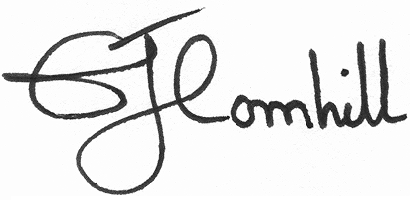 GJ Cornhill